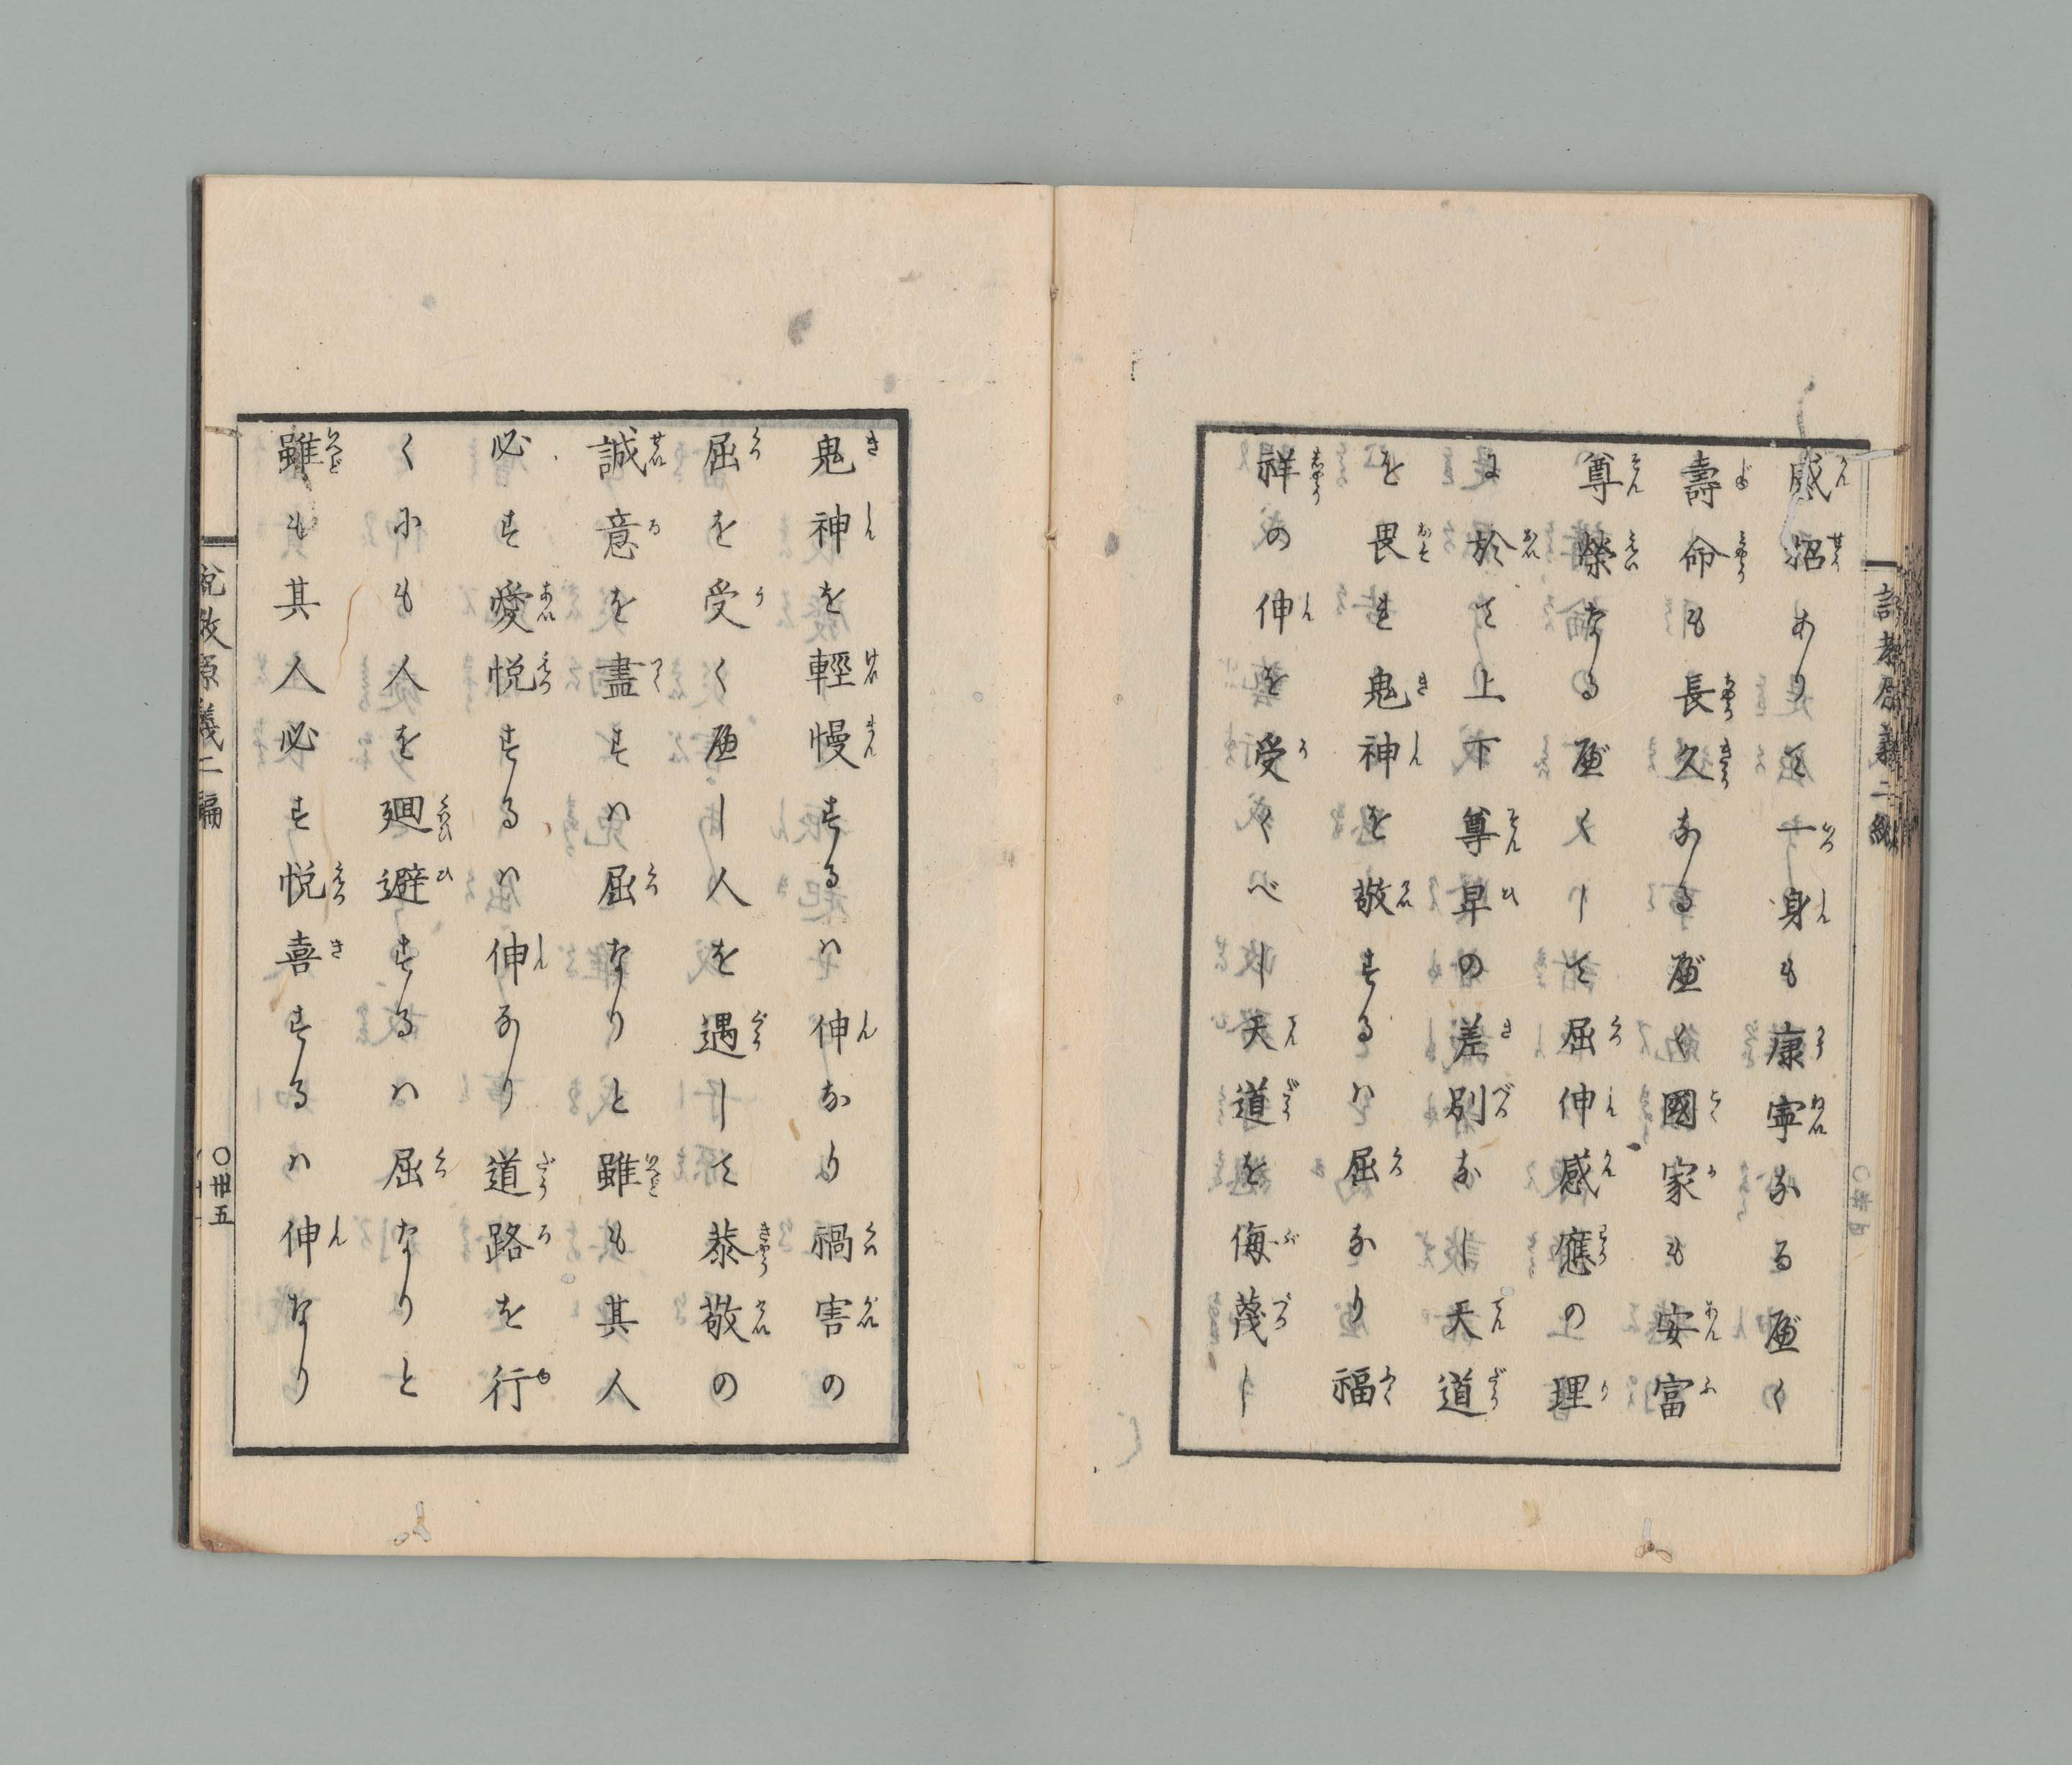 感沼ありて一身も康寧なる𛀁く
壽命も長久なる𛀁く國家も安富
尊榮なる𛀁くして屈伸感應の理
に於て上下尊卑の差別なし天道
を畏き鬼神を敬するハ屈なり福
祥の伸を受くべし天道を侮蔑し
鬼神を輕慢するハ伸なり禍害の
屈を受く𛀁し人を遇して恭敬の
誠意を盡すハ屈なりと雖も其人
必す愛悦するハ伸なり道路を行
くにも人を廻避するハ屈なりと
雖も其人必す悦喜するハ伸なり
説教原義二編
〇卅五